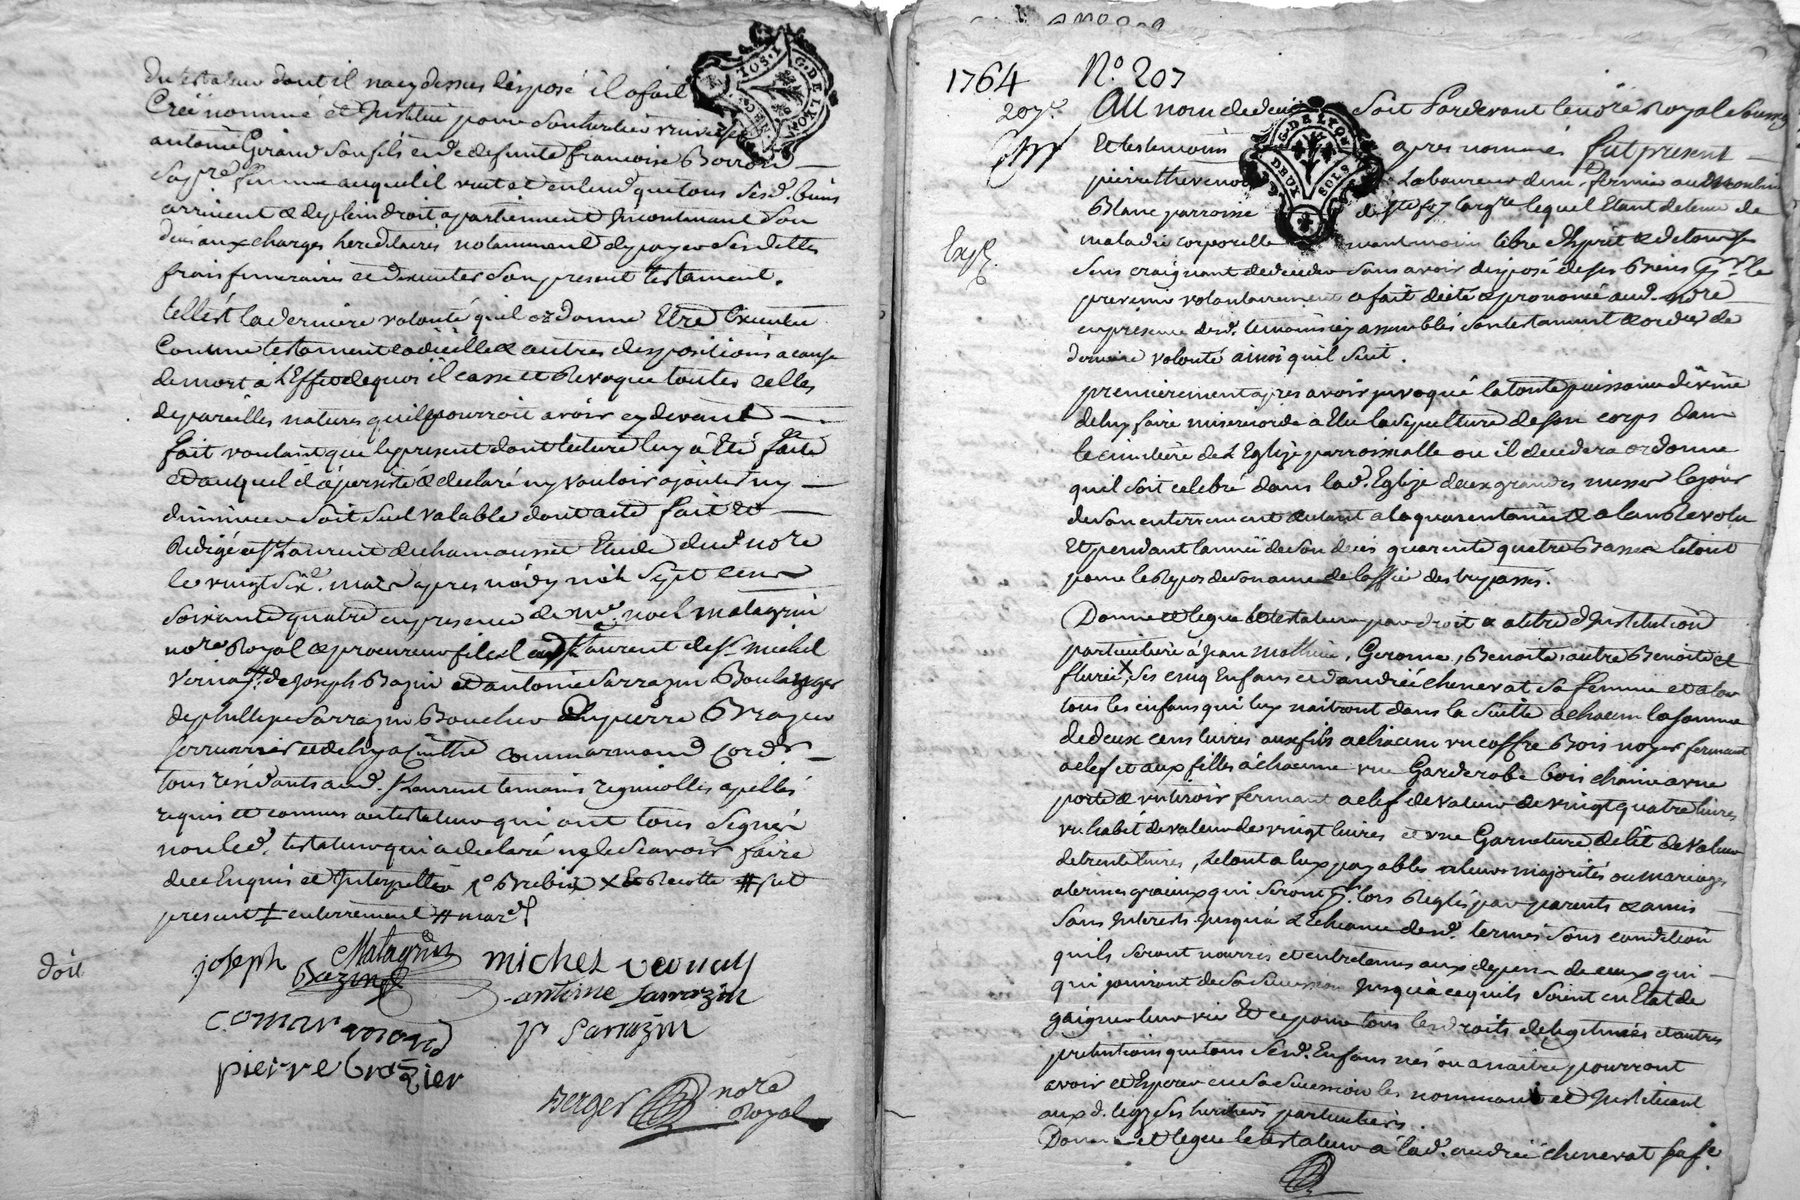 du testateur dont il na cydessus disposé il a fait
Creé nommé et Institué pour son heritier universel
antoine Giraud son fils et de defunte francoise Borron
sa pre. femme auquel il veut et entend que tous sesd. biens
arrivent & de plein droit apartiennent Incontinant son
deces aux charges hereditaires notamment de payer ses dettes
frais funeraires et dexecuter son present testament.
telle est la derniere volonté quil ordonne Etre Executée
Comme testament codicille & autres dispositions a cause
de mort a L'Effet de quoi il casse et Revoque toutes celles
de pareilles natures quil pourroit avoir cy devant
fait voulant que le present dont lecture luy à Eté faite
et auquel il à persisté & declaré ny vouloir ajouter ny
diminuer soit seul valable dont acte fait et
Redigé a St Laurent de chamousset Etude dud. nore
le vingt six mars apres midy mil sept cens
soixante quatre en presence de me. noel matagrin
nore Royal & procureur fiscal aud. St Laurent de Sr michel
Vernay de Joseph Bazin et d'antoine Sarrazin Boulanger
de phillipe Sarrazin Boucher de pierre Brazier
serrurier et de hyacinthe commarmond Cordr.
tous residants aud. St Laurent temoins apellés
requis et connus au testateur qui ont tous signé
non led. testateur qui a declaré ne le scavoir faire
de ce Enquis et Interpellé
present ‡ enterrement # mar
doit
joseph Bazin
Matagrin
michel vernay
antoine Sarrazin
comarmond
p Sarrazin
pierre brazier
Berger nore Royal
TOS. I G. DE LYON
1764 N.º 207
207e. AU nom de dieu soit Pardevant le nore Royal soussigné
Et les temoins apres nommés fut present
pierre thevenot Laboureur demt. fermier au Moulin
Blanc parroisse de Ste foy largre. lequel Etant detenu de
maladie corporelle neantmoins libre d'Esprit & de tous ses
sens craignant de deceder sans avoir disposé de ses Biens pour le
prevenir volontairement a fait dicté & prononcé aud. nore
en presence desd. temoins cy assemblés son testament & ordre de
derniere volonté ainsi quil suit.
Exp.
G. DE LYON DEUX SOLS
premierement apres avoir invoqué la toute puissance divine
de luy faire misericorde a Elu la sepulture de son corps dans
le cimitière de L'Eglize parroissialle ou il decedera ordonne
quil soit celebré dans lad. Eglize deux grandes messes le jour
de son enterrement autant a la quarantaine & a lan Revolu
Et pendant lannée de son deces quarante quatre Basses le tout
pour le Repos de son ame de loffice des trepassés.
Donne et legue le testateur par droit & a titre d'Institution
particuliere à jean mathieu, Gerome, Benoite, autre Benoite et
fleurie X ses cinq Enfans et d'andrée chenevat sa femme et a
tous les enfans qui luy naitront dans la suitte a chacun la somme
de deux cens livres aux fils a chacun un coffre Bois noyer fermant
a clef et aux filles a chacune une Garderobe bois chaine a une
porte & un tiroir fermant a clef de valeur de vingt quatre livres
un habit de valeur de vingt livres et une Garniture de lit de valeur
de trente livres, le tout a eux payables a leurs majorités ou mariages
a termes gracieux qui seront pour lors Reglés par parents & amis
sans Interests Jusqu'a L'Echeance desd. termes sous condition
quils seront nourris et entretenus aux depens de ceux qui
qui jouiront de sa succession Jusqu'a ce quils soient en Etat de
gaigner leur vie Et ce pour tous les droits de legitimes et autres
pretentions que tous sesd. Enfans nés ou a naitre pourront
avoir et Esperer en sa succession les nommant et Instituant
auxd. legs ses heritiers particuliers.
Donne et legue le testateur a lad. andrée chenevat sa fe.